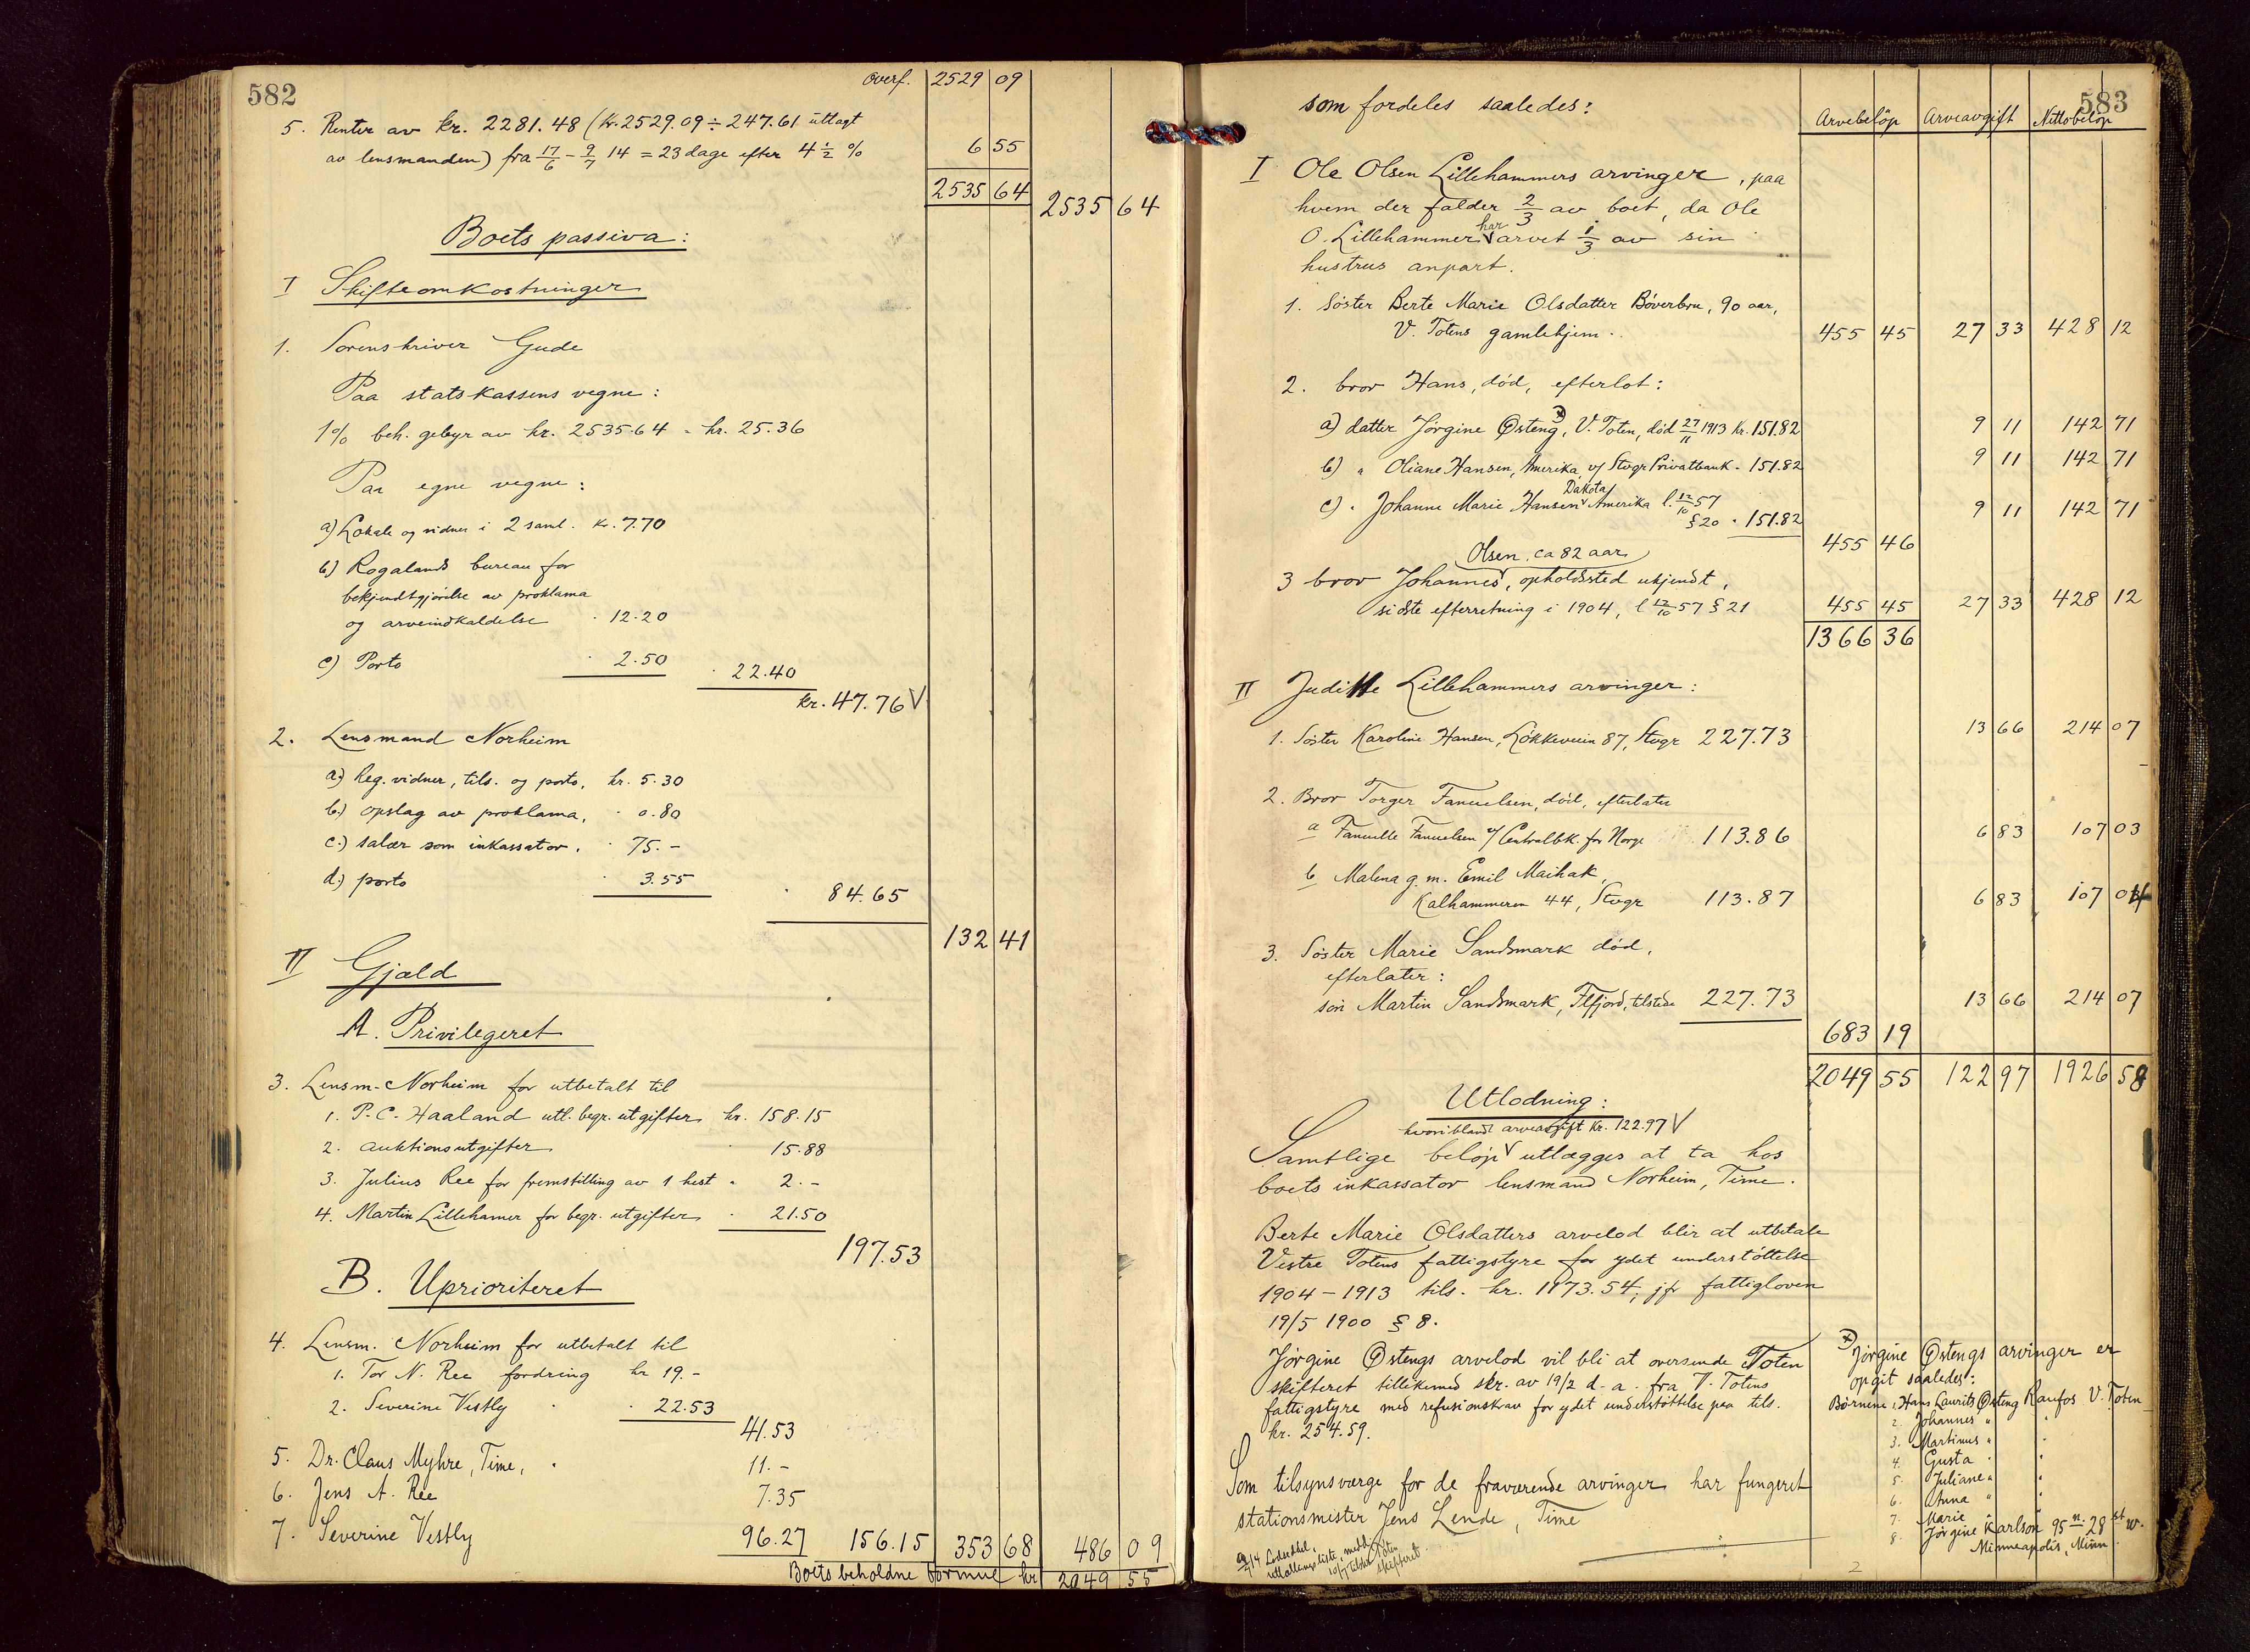 582
Overf. 2529 09
5. Renter av kr. 2281.48 (kr. 2529.09 ÷ 247.61 uttagt
av lensmanden) fra 17/6 - 9/7 14 = 23 dage efter 4 1/2 % 6 55
2535 64 2535 64
Boets passiva:
I Skifteomkostninger
1. Sorenskriver Gude
Paa statskassens vegne:
1% beh. gebyr av kr. 2535.64 - kr. 25.36
Paa egne vegne:
a) Lokale og vidner i 2 saml. kr. 7.70
b) Rogalands bureau for
bekjendtgjørelse av proklama
og arveindkaldelse · 12.20
c) Porto · 2.50 · 22.40
kr. 47.76 V
2. Lensmand Norheim
a.) Reg. vidner, tils. og porto, kr. 5.30
b.) opslag av proklama, · 0.80
c.) salær som inkassator, · 75.-
d.) porto · 3.55 · 84.65
132 41
II Gjæld
A. Privilegeret
3. Lensm. Norheim for utbetalt til
1. P. C. Haaland utl. begr. utgifter kr. 158.15
2. auktionsutgifter · 15.88
3. Julius Ree for fremstilling av 1 hest " 2.-
4. Martin Lillehamer for begr. utgifter · 21.50
197.53
B. Uprioriteret
4. Lensm. Norheim for utbetalt til
1. Tor N. Ree fordring kr 19.-
2. Severine Vestly · 22.53
41.53
5. Dr. Claus Myhre, Time, · 11.-
6. Jens A. Ree 7.35
7. Severine Vestly 96.27 156.15 353 68 486 09
Boets beholdne formue kr 2049 55
583
som fordeles saaledes:
Arvebeløp Arveavgift Nettobeløp
I Ole Olsen Lillehammers arvinger, paa
hvem der falder 2/3 av boet, da Ole
har
O. Lillehammer V arvet 1/3 av sin
hustrus anpart.
1. Søster Berte Marie Olsdatter Bøverbru, 90 aar,
V. Totens gamlehjem. 455 45 27 33 428 12
2. bror Hans, død, efterlot:
a) datter Jørgine Østeng, x) V. Toten, død 27/11 1913 kr. 151.82 9 11 142 71
b) " Oliane Hansen, Amerika v/ Stvgr Privatbank - 151.82 9 11 142 71
Dakota
c) " Johanne Marie Hansen V Amerika l. 12/10 57
§ 20 " 151.82 9 11 142 71
455 46
Olsen ca 82 aar
3 bror Johannes V, opholdssted ukjendt,
sidste efterretning i 1904, l 12/10 57 § 21 455 45 27 33 428 12
1366 36
II Juditte Lillehammers arvinger:
1. Søster Karoline Hansen, Løkkeveien 87, Stvgr 227.73 13 66 214 07
2. Bror Torger Fanuelsen, død, efterlater
a Fanuelle Fanuelsen v/ Centralbk. for Norge 113.86 6 83 107 03
b Malena g. m. Emil Maihak,
Kalhammeren 44, Stvgr 113.87 6 83 107 04
3. Søster Marie Sandsmark død,
efterlater:
søn Martin Sandsmark, Flfjord, tilstede 227.73 13 66 214 07
683 19
2049 55 122 97 1926 58
Utlodning:
hvoriblandt arveavgift kr. 122.97 V
Samtlige beløp V utlægges at ta hos
boets inkassator lensmand Norheim, Time.
Berte Marie Olsdatters arvelod blir at utbetale
Vestre Totens fattigstyre for ydet understøttelse
1904 - 1913 tils. kr. 1173.54; jfr fattigloven
19/5 1900 § 8.
Jørgine Østengs arvelod vil bli at oversende Toten
skifteret tillikemed skr. av 19/2 d. a. fra V. Totens
fattigstyre med refusionskrav for ydet understøttelse paa tils.
kr. 254.59.
Som tilsynsværge for de fraværende arvinger har fungeret
stationsmester Jens Lende, Time
x) Jørgine Østengs arvinger er
opgit saaledes:
Børnene 1. Hans Laurits Østeng Raufos V. Toten
2. Johannes " "
3. Martinus " "
4. Gusta " "
5. Juliane " "
6. Anna " "
7. Marie " "
8. Jørgine Karlson 95 n. 28 st w.
Minneapolis, Minn.